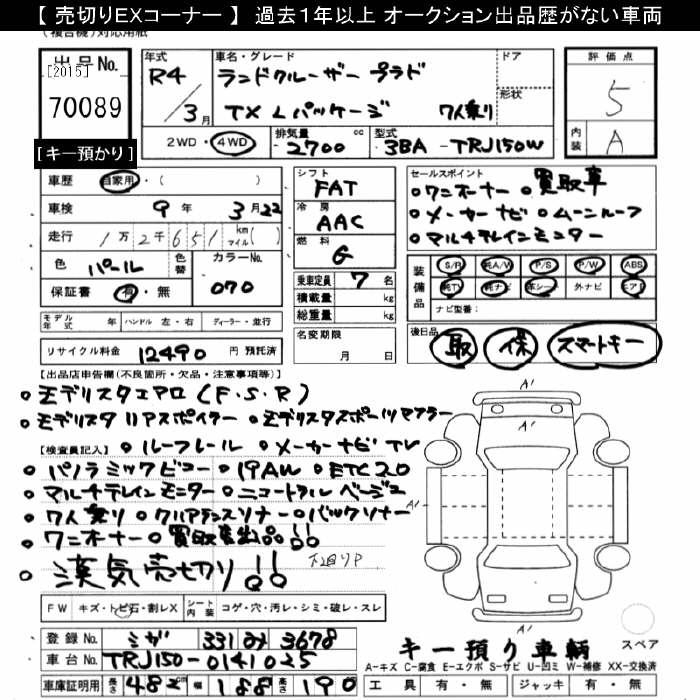 【 売切りEXコーナー 】 過去１年以上 オークション出品歴がない車両
(複合機)対応用紙
出品No.
[2015]
70089
[キー預かり]
年式
R4/3月
車名・グレード
ランドクルーザー プラド
TX Lパッケージ 7人乗り
ドア
形状
2WD・4WD
排気量 2700 cc
型式 3BA - TRJ150W
評価点
5
内装 A
車歴 自家用・( )
車検 9年 3月22
走行 1万2千651 km マイル( )
色 パール 色替 カラーNo. 070
保証書 有・無
シフト FAT
冷房 AAC
燃料 G
乗車定員 7 名
積載量 kg
総重量 kg
セールスポイント
○ワンオーナー ○買取車
○メーカーナビ ○ムーンルーフ
○マルチテレインモニター
装備品 S/R 純A/W P/S P/W ABS
純TV 純ナビ 革シート 外ナビ エアB
ナビ型番:
モデル年式 年 ハンドル 左・右 ディーラー・並行
リサイクル料金 12490 円 預託済
名変期限 月 日
後日品 取 保 スマートキー
【出品店申告欄(不良箇所・欠品・注意事項等)】
○モデリスタエアロ(F.S.R)
○モデリスタリアスポイラー ○モデリスタスポーツマフラー
【検査員記入】 ○ルーフレール ○メーカーナビTV
○パノラミックビュー ○19AW ○ETC2.0
○マルチテレインモニター ○ニュートラルベージュ
○7人乗り ○クリアランスソナー ○バックソナー
○ワンオーナー ○買取車出品!!
○漢気売切り!!
下廻りP
A1
A1
A1
A1
FW キズ・トビ石・割レX シート内装 コゲ・穴・汚レ・シミ・破レ・スレ
登録No. ミザ 331 み 3678
車台No. TRJ150-0141025
車庫証明用 長さ 482 cm 幅 188 高さ 190
スペア
キー預り車輌
A－キズ C－腐食 E－エクボ S－サビ U－凹ミ W－補修 XX－交換済
工具 有・無 ジャッキ 有・無